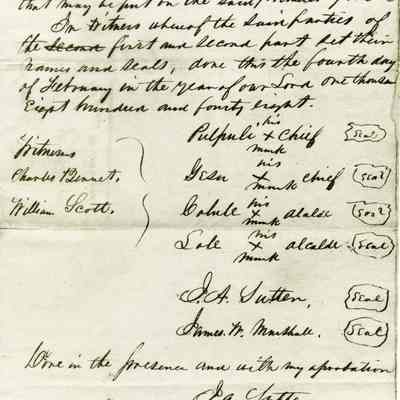 that may be put on the said
In Witness whereof the said parties of
the Second first and second part set their
names and seals, done this the fourth day
of February in the year of our Lord one thousand
Eight hundred and fourty eight.
his
Pulpuli x Chief Seal
mark
Witness
his
Charles Bennet. Gesu x chief Seal
mark
his
William Scott. Colule x alcalde Seal
mark
his
Lole x alcalde Seal
mark
J. A. Sutter, Seal
James W. Marshall. Seal
Done in the presence and with my aprobation